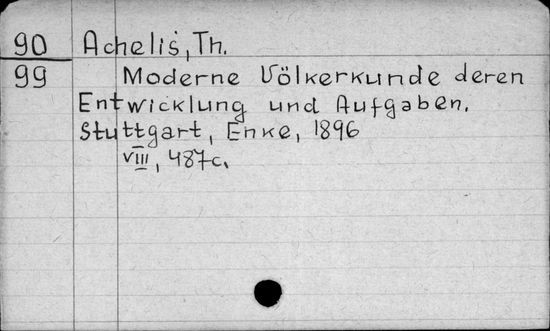 90 Achelis, Th.
99 Moderne Völkerkunde deren
Entwicklung und Aufgaben.
Stuttgart, Enke, 1896
VIII, 487c.